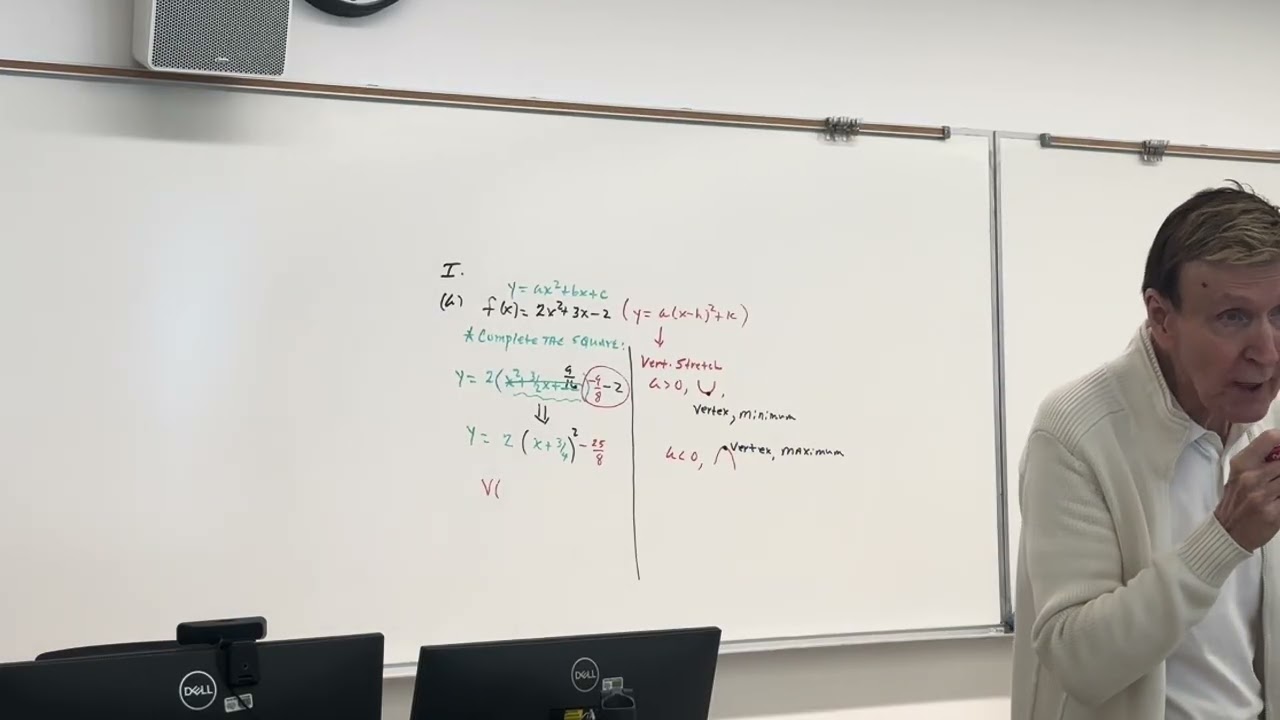 I.
y = ax²+bx+c
(a) f(x) = 2x²+3x-2 (y = a(x-h)²+k)
* Complete THE SQUARE:
y = 2(x²+3/2x+9/16) -9/8 -2
⇓
y = 2(x+3/4)² - 25/8
V(
↓
Vert. Stretch
a>0, ∪,
Vertex, minimum
a<0, ∩ Vertex, MAXIMUM
DELL
DELL